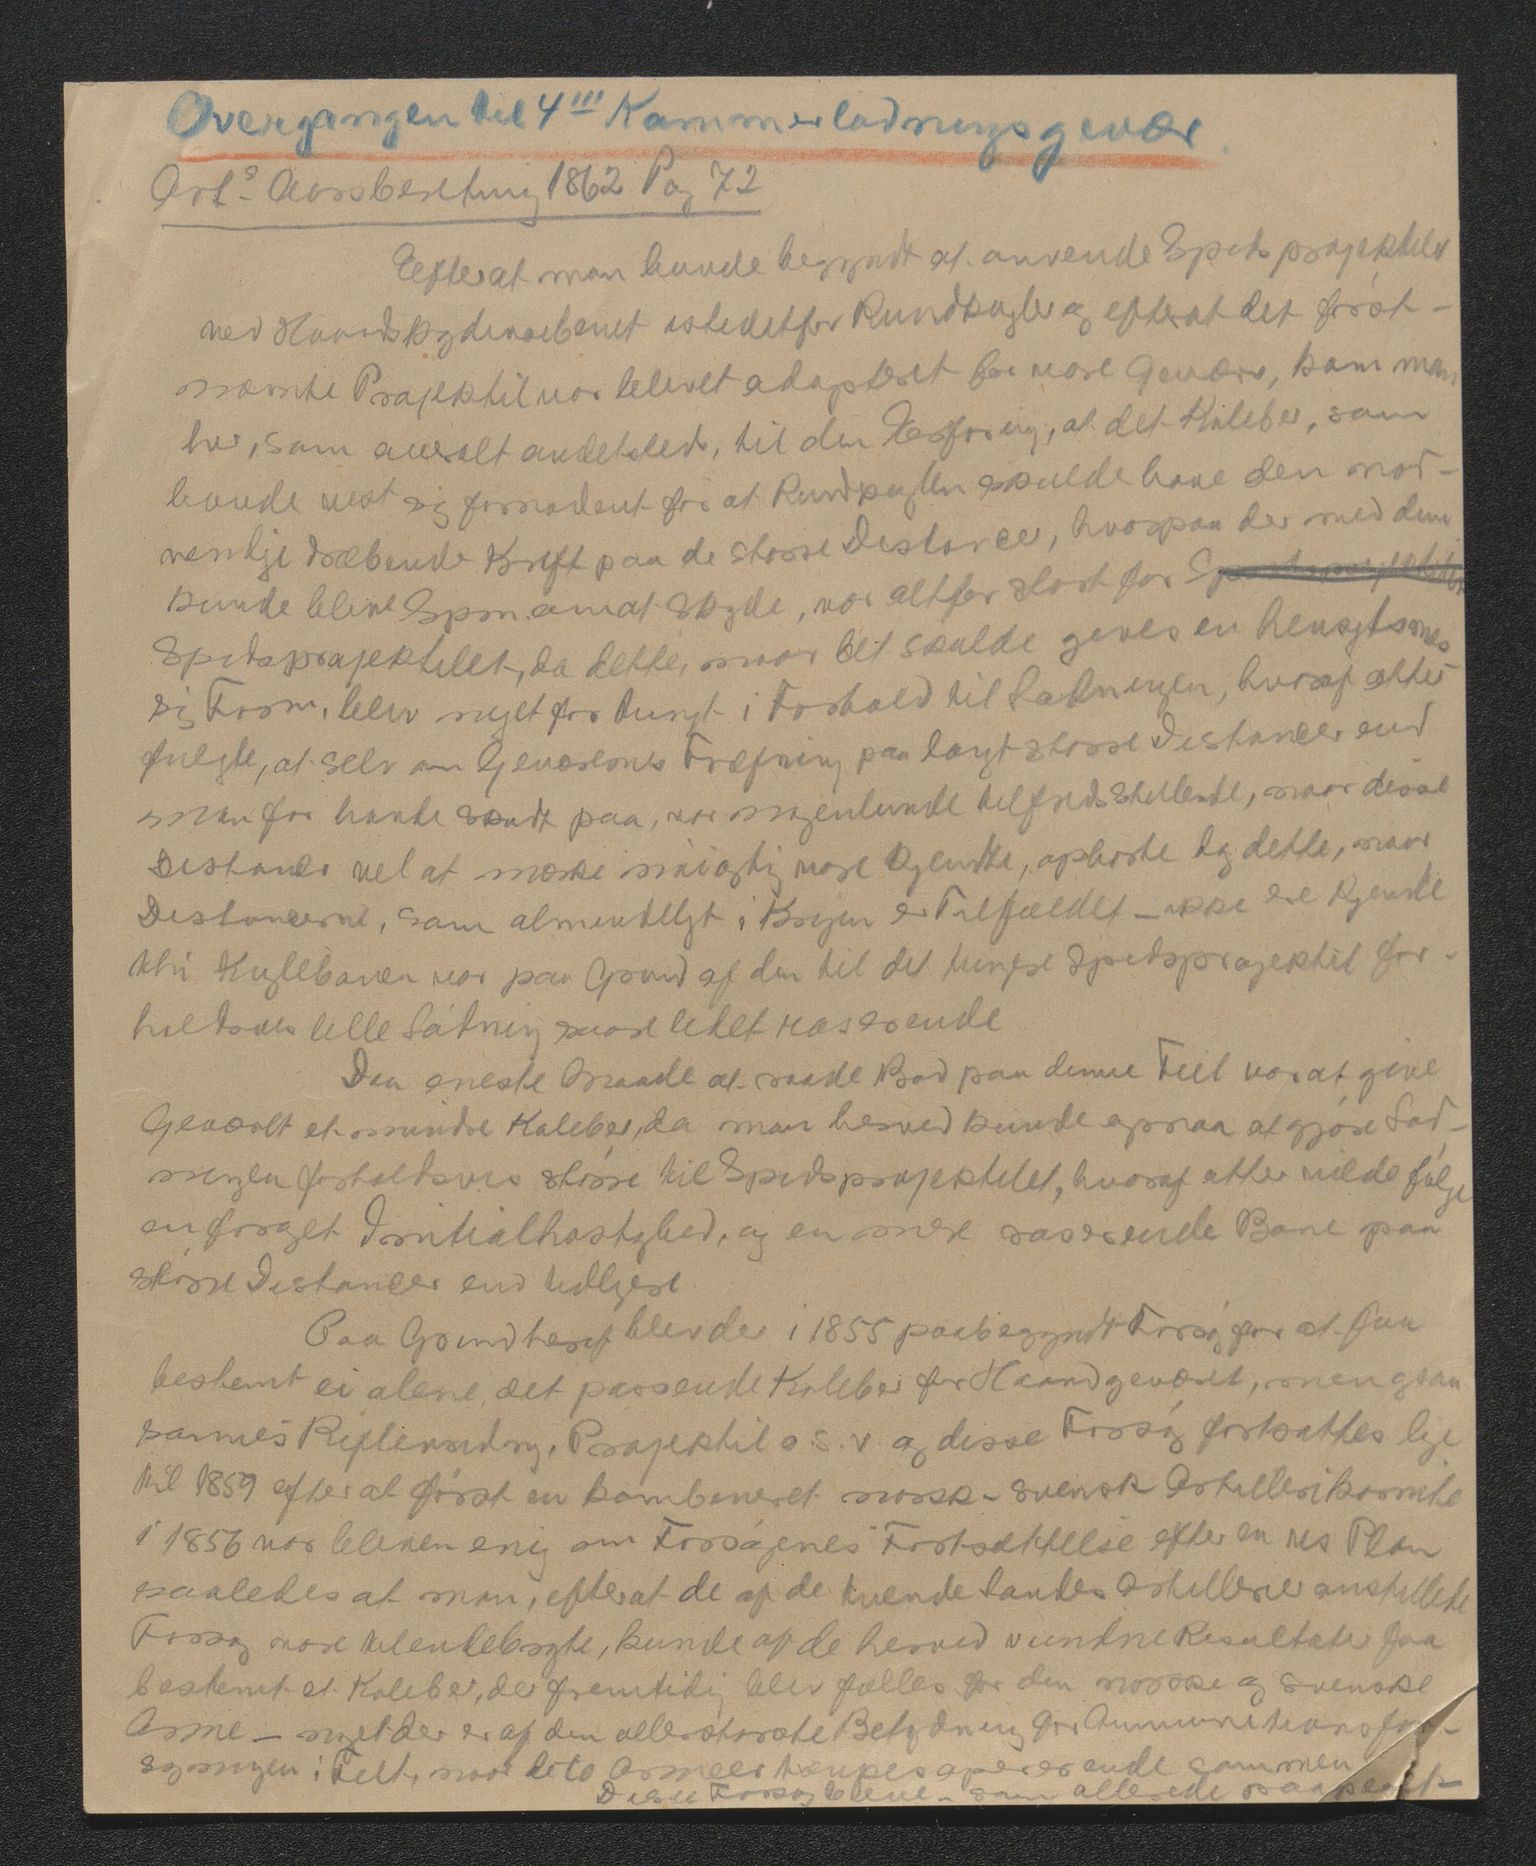 Overgangen til 4''' Kammerladningsgevær.
Art.s Aarsberetning 1862 Pag 72
Efterat man havde begyndt at anvende Spidsprojektiler
ved Haandskydevaabenet istedetfor Rundkugler og efterat det først-
nævnte Projektil var blevet adapteret for vore Geværer, kom man
her, som overalt andetsteds, til den Erfaring, at det Kaliber, som
havde vist sig fornødent for at Rundkuglen skulde have den nød-
vendige dræbende Kraft paa de større Distancer, hvorpaa der med den
kunde blive Spm. om at skyde, var altfor stort for
Spidsprojektilet, da dette, naar det skulde gives en hensigtsmæs
sig Form, blev meget for tungt i Forhold til Ladningen, hvoraf atter
fulgte, at selv om Geværernes Træfning paa langt større Distancer end
man før havde skudt paa, var nogenlunde tilfredsstillende, naar disse
Distancer vel at mærke nøiagtig vare kjendte, ophørte dog dette, naar
Distancerne, som almindeligt i Krigen er Tilfældet – ikke ere kjendte
thi Kuglebanen var paa Grund af den til det tunge Spidsprojektil for-
holdsvis lille Ladning svare lidet raserende
Den eneste Maade at raade Bod paa denne Feil var at give
Geværet et mindre Kaliber, da man herved kunde opnaa at gjøre Lad-
ningen forholdsvis større til Spidsprojektilet, hvoraf atter vilde følge
en forøget Initialhastighed, og en mere raserende Bane paa
større Distancer end tidligere
Paa Grund heraf blev der i 1855 paabegyndt Forsøg for at faa
bestemt ei alene det passende Kaliber for Haandgeværet, men ogsaa
sammes Rifleinretng, Projektil o.s.v. og disse Forsøg fortsattes lige
til 1859 efterat først en kombineret norsk-svensk Artillerikomite
i 1856 var bleven enig om Forsøgenes Fortsættelse efter en vis Plan
saaledes at man, efterat de af de tvende Landes Artillerier anstillede
Forsøg vare tilendebragte, kunde af de herved vundne Resultater faa
bestemt et Kaliber, der fremtidig blev fælles for den norske og svenske
Arme – noget der er af den allerstørste Betydning for Ammunitionsfor-
syningen i Felt, naar de to Armeer tænkes opererende sammen
Disse Forsøg bleve – som allerede paapeget –